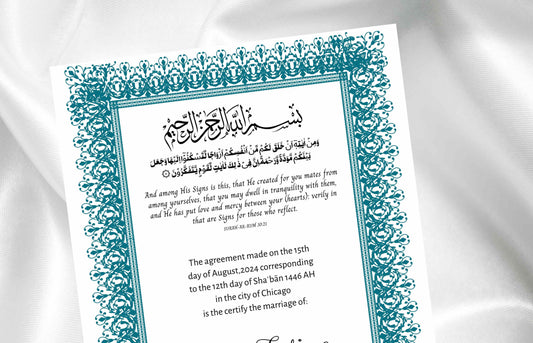 بسم الله الرحمن الرحيم
وَمِنْ آيَاتِهِ أَنْ خَلَقَ لَكُم مِّنْ أَنفُسِكُمْ أَزْوَاجًا لِّتَسْكُنُوا إِلَيْهَا وَجَعَلَ
بَيْنَكُم مَّوَدَّةً وَرَحْمَةً إِنَّ فِي ذَٰلِكَ لَآيَاتٍ لِّقَوْمٍ يَتَفَكَّرُونَ
And among His Signs is this, that He created for you mates from
among yourselves, that you may dwell in tranquility with them,
and He has put love and mercy between your (hearts); verily in
that are Signs for those who reflect.
SURAH AR-RUM 30:21
The agreement made on the 15th
day of August,2024 corresponding
to the 12th day of Shaʿbān 1446 AH
in the city of Chicago
is the certify the marriage of: